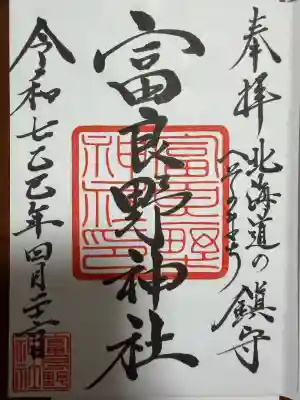 奉拝 北海道の
へそのまち 鎮守
富良野神社
富良野
神社印
令和七乙巳年四月二十二日
富良野
神社